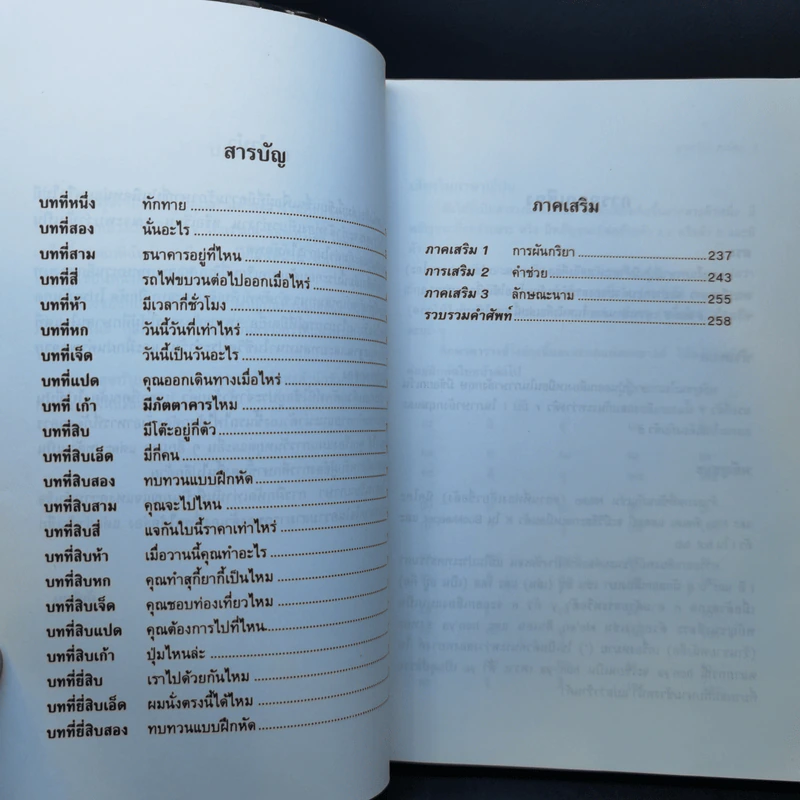 สารบัญ
บทที่หนึ่ง ทักทาย
บทที่สอง นั่นอะไร
บทที่สาม ธนาคารอยู่ที่ไหน
บทที่สี่ รถไฟขบวนต่อไปออกเมื่อไหร่
บทที่ห้า มีเวลากี่ชั่วโมง
บทที่หก วันนี้วันที่เท่าไหร่
บทที่เจ็ด วันนี้เป็นวันอะไร
บทที่แปด คุณออกเดินทางเมื่อไหร่
บทที่ เก้า มีภัตตาคารไหม
บทที่สิบ มีโต๊ะอยู่กี่ตัว
บทที่สิบเอ็ด มีกี่คน
บทที่สิบสอง ทบทวนแบบฝึกหัด
บทที่สิบสาม คุณจะไปไหน
บทที่สิบสี่ แจกันใบนี้ราคาเท่าไหร่
บทที่สิบห้า เมื่อวานนี้คุณทำอะไร
บทที่สิบหก คุณทำสุกี้ยากี้เป็นไหม
บทที่สิบเจ็ด คุณชอบท่องเที่ยวไหม
บทที่สิบแปด คุณต้องการไปที่ไหน
บทที่สิบเก้า ปุ่มไหนล่ะ
บทที่ยี่สิบ เราไปด้วยกันไหม
บทที่ยี่สิบเอ็ด ผมนั่งตรงนี้ได้ไหม
บทที่ยี่สิบสอง ทบทวนแบบฝึกหัด
ภาคเสริม
ภาคเสริม 1 การผันกริยา 237
ภารเสริม 2 คำช่วย 243
ภาคเสริม 3 ลักษณะนาม 255
รวบรวมคำศัพท์ 258